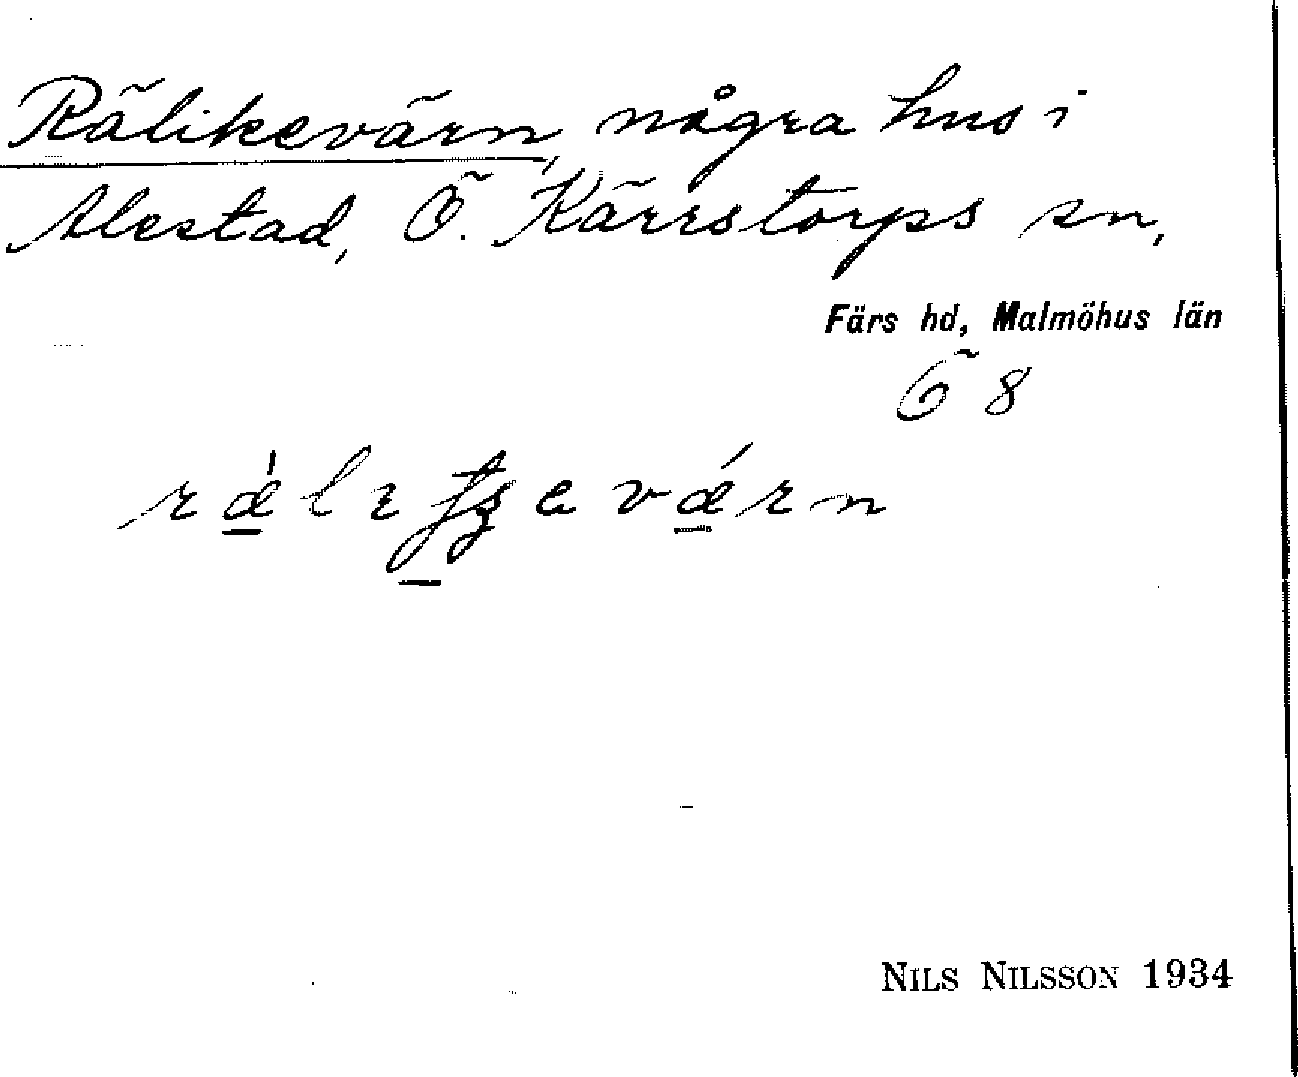 Rälikevärn, några hus i
Alestad, Ö. Kärrstorps sn,
Färs hd, Malmöhus län
Ö 8
NILS NILSSON 1934